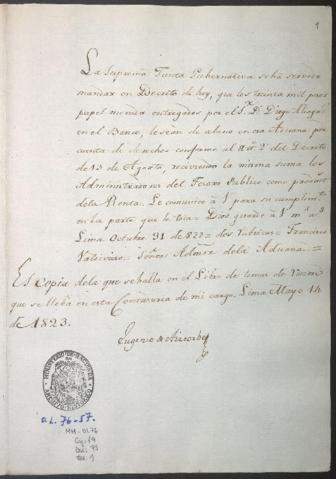 1
La Suprema Junta Gubernativa se ha servido
mandar en Decreto de hoy, que los treinta mil pesos
papel moneda entregados por el S.r D.n Diego Aliaga
en el Banco, le sean de abono en esa Aduana por
cuenta de derechos conforme al art.o 2.o del Decreto
de 13 de Agosto, recibiendo la misma suma los
Administradores del Tesoro Publico como producto
de la Renta. Lo comunico a V para su cumplimto
en la parte que le toca = Dios guarde a V m.s a.s
Lima Octubre 31 de 822 = dos Rubricas = Francisco
Valdivieso. Señor Admor dela Aduana =
Es copia dela que se halla en el Libro de tomas de Razon
que se lleba en esta Contaduria de mi cargo. Lima Mayo 14
de 1823.
Eugenio de Aizcorbe
O.L. 76-57.
MH-OL76
Cj: 19
Doc: 93
Fol: 1